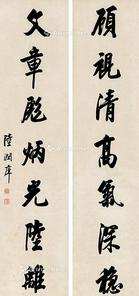 顧視清高氣深穩
文章彪炳光陸離
陸潤庠